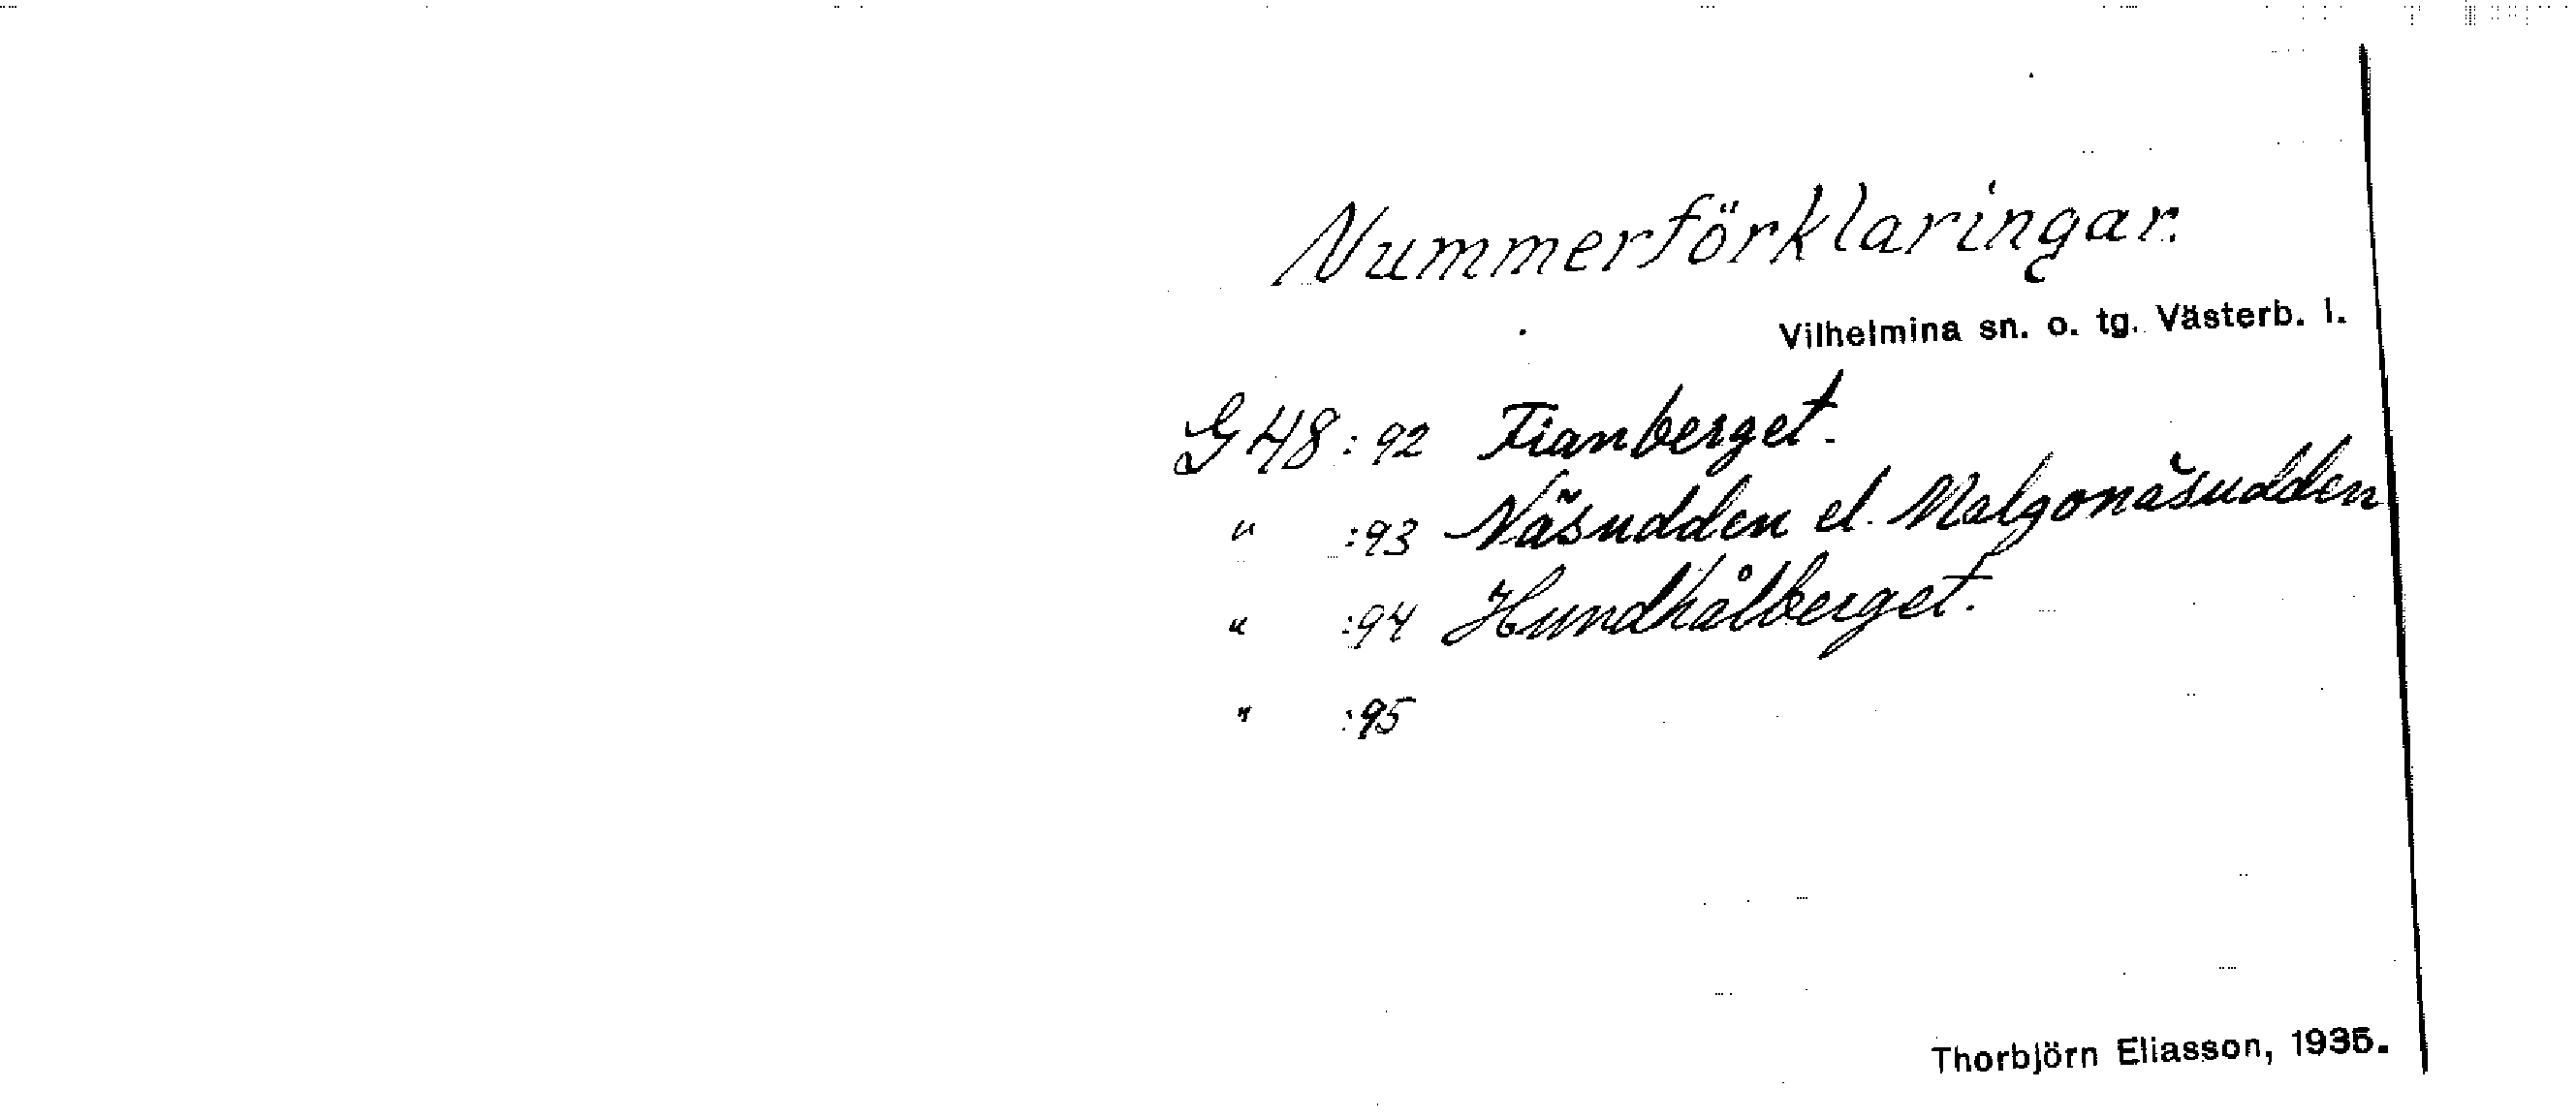 Nummerförklaringar.
Vilhelmina sn. o. tg. Västerb. l.
G 48 : 92 Fianberget.
" : 93 Näsudden el. Malgonäsudden
" : 94 Hundhålberget.
" : 95
Thorbjörn Eliasson, 1935.